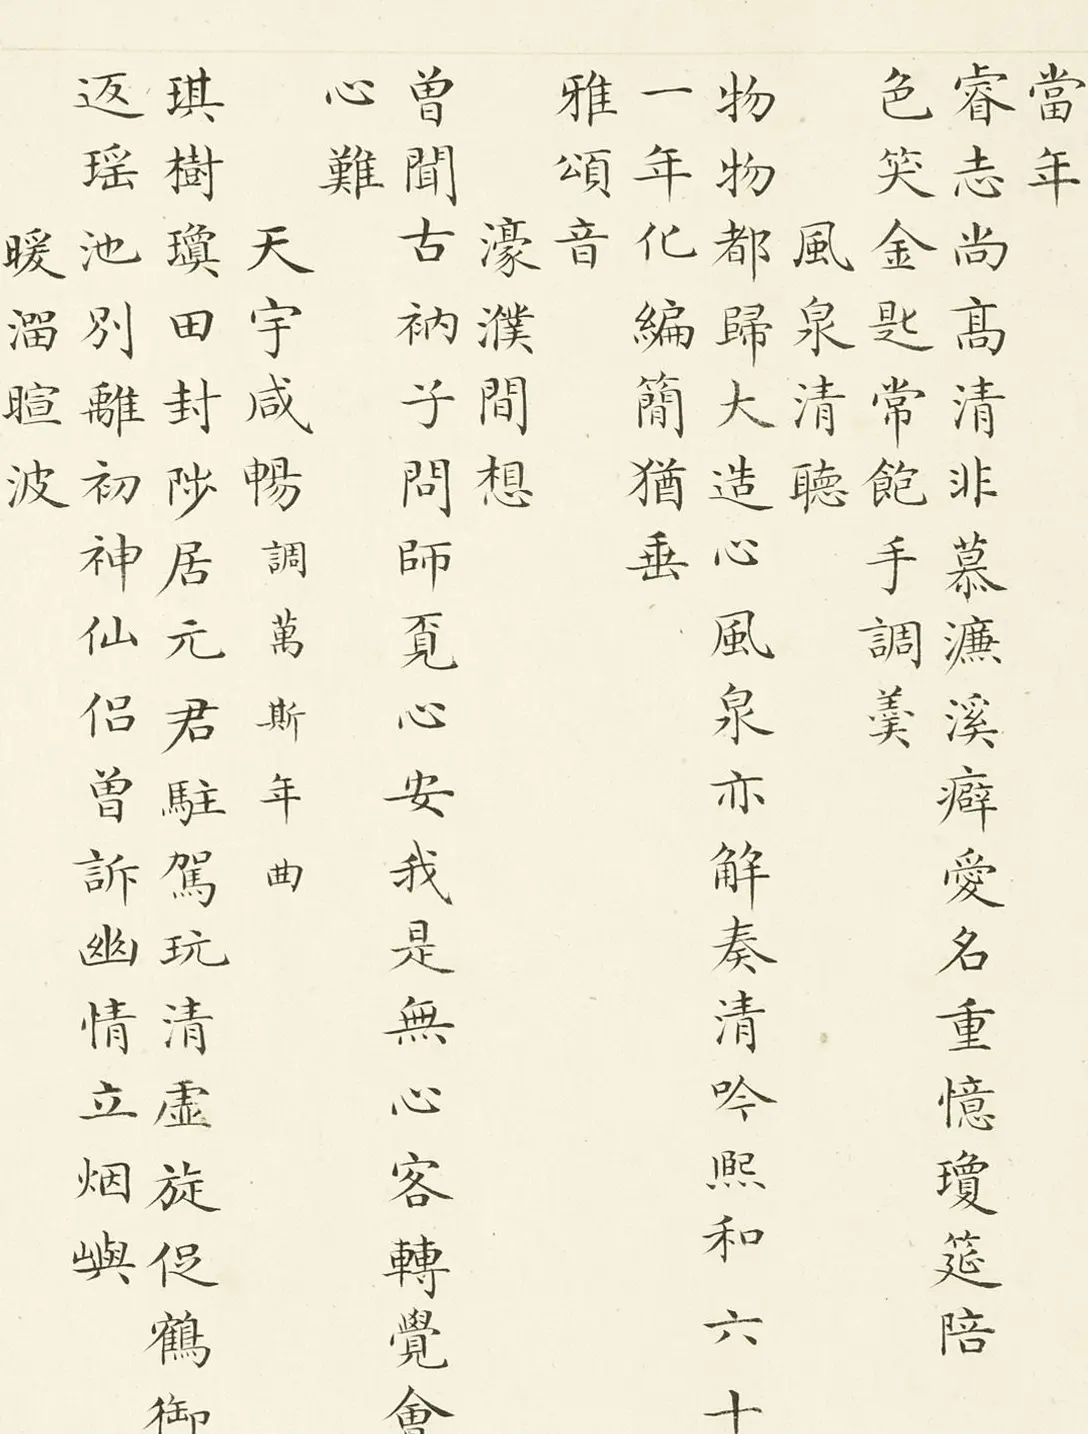 當年
睿志尚髙清非慕濂溪癖愛名重憶瓊筵陪
色笑金匙常飽手調羹
風泉清聽
物物都歸大造心風泉亦解奏清吟熈和六十
一年化編簡猶垂
雅頌音
濠濮間想
曽聞古衲子問師覓心安我是無心客轉覺會
心難
天宇咸暢調萬斯年曲
琪樹瓊田封陟居元君駐駕玩清虛旋促鶴御
返瑶池別離初神仙侣曽訴幽情立烟嶼
暖溜暄波